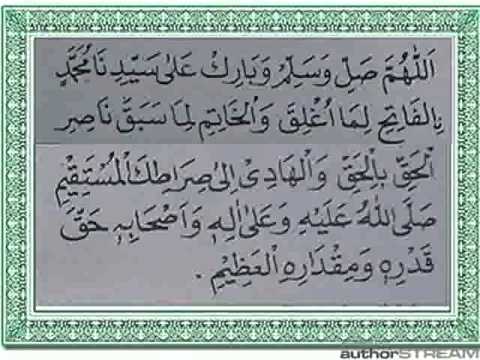 اَللّٰهُمَّ صَلِّ وَسَلِّمْ وَبَارِكْ عَلٰى سَيِّدِنَا مُحَمَّدٍ
اِلْفَاتِحِ لِمَا اُغْلِقَ وَالْخَاتِمِ لِمَا سَبَقَ نَاصِرِ
الْحَقِّ بِالْحَقِّ وَالْهَادِيْ اِلٰى صِرَاطِكَ الْمُسْتَقِيْمِ
صَلَّى اللهُ عَلَيْهِ وَعَلٰى اٰلِهٖ وَاَصْحَابِهٖ حَقَّ
قَدْرِهٖ وَمِقْدَارِهِ الْعَظِيْمِ .
authorSTREAM